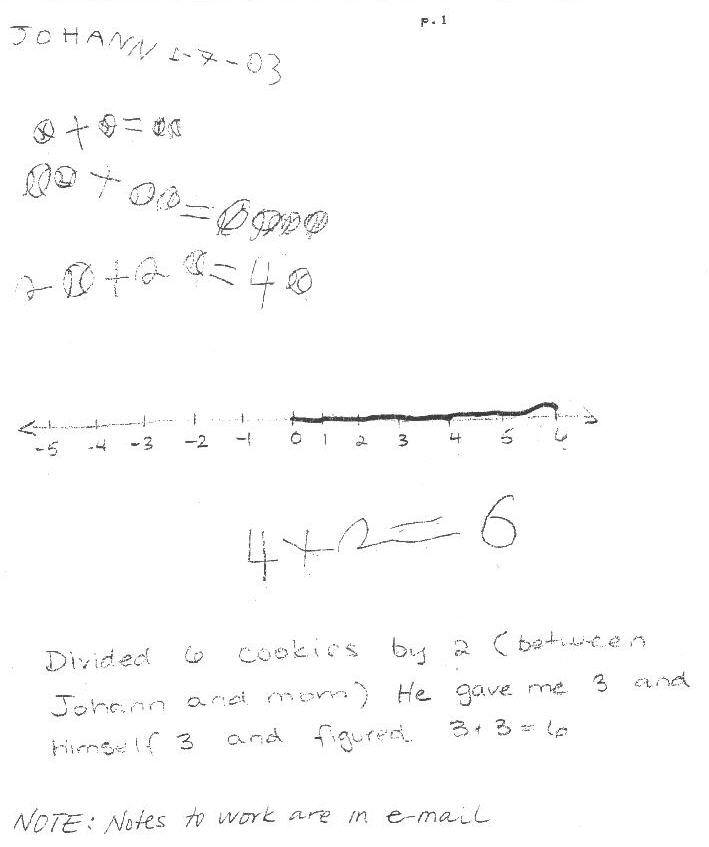 p.1
JOHANN 1-7-03
+ =
+ =
2 + 2 = 4
-5 -4 -3 -2 -1 0 1 2 3 4 5 6
4+2=6
Divided 6 cookies by 2 (between
Johann and mom) He gave me 3 and
Himself 3 and figured 3+3=6
NOTE: Notes to work are in e-mail